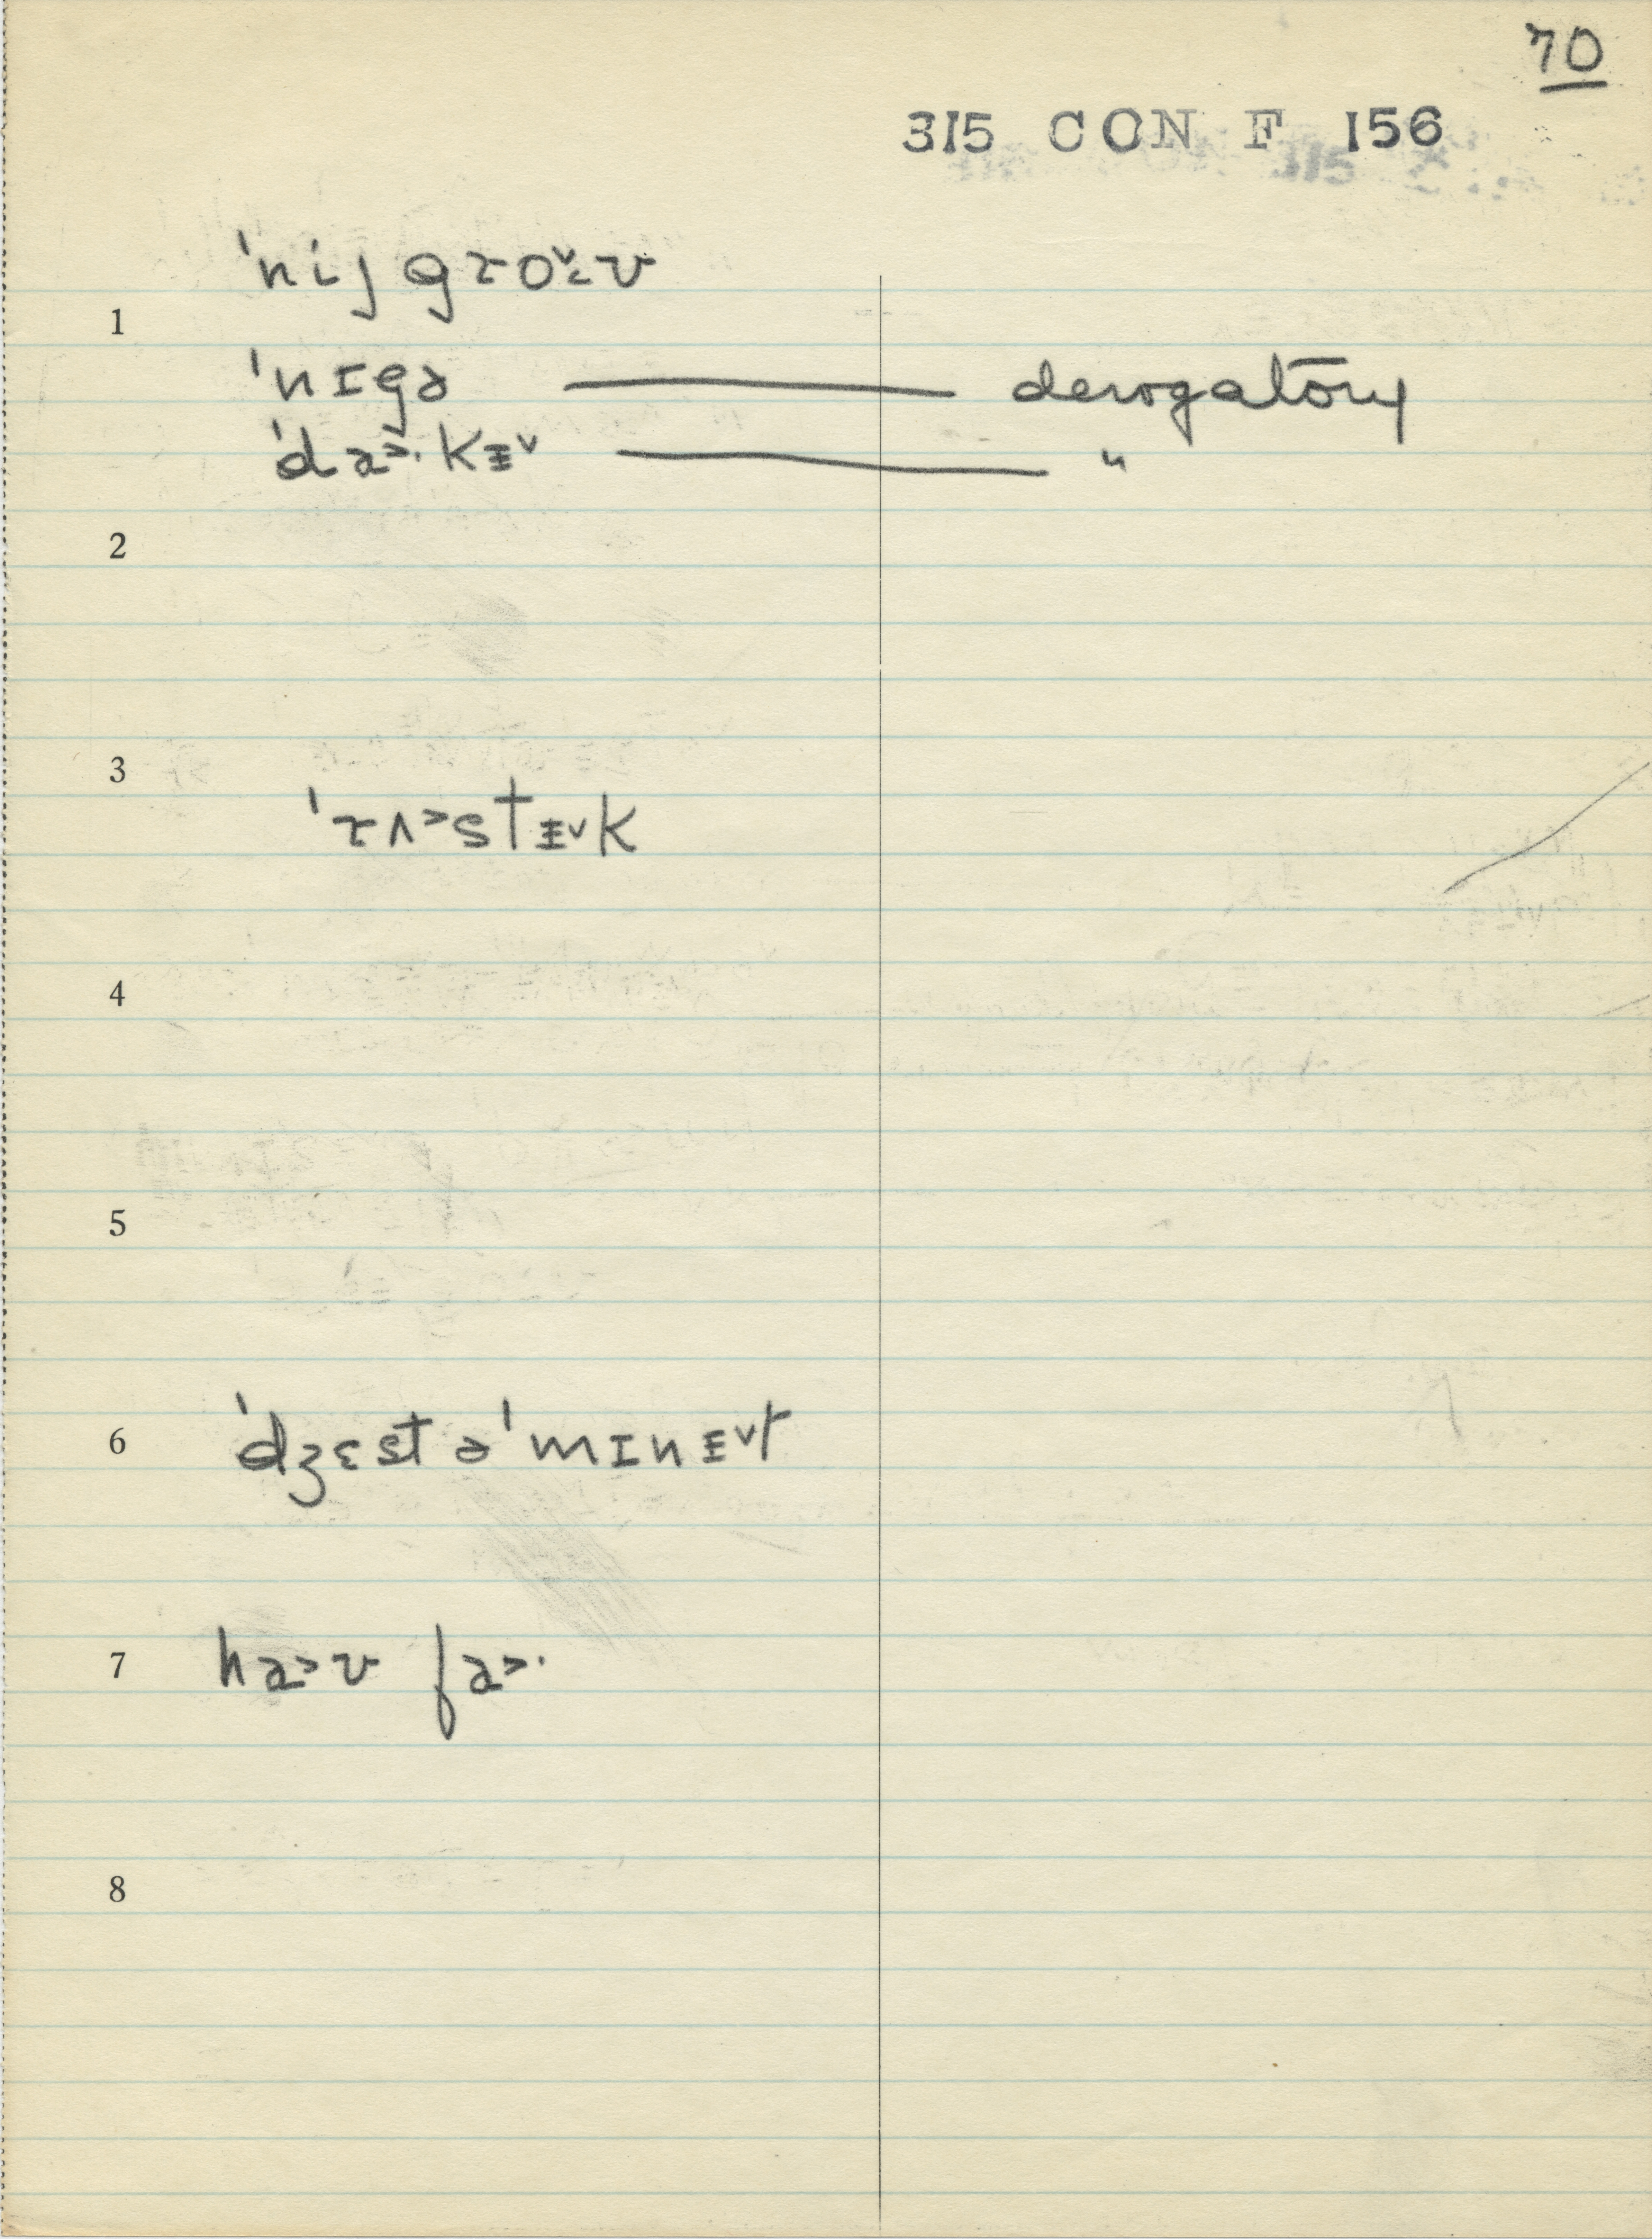 70
315 CON F 156
ˈnij groᵛ·ʊ
1
ˈnɪgə —— derogatory
ˈda˃·kɪ̵ᵛ —— "
2
3
ˈrʌ˃stɪ̵ᵛk
4
5
6 ˈdʒɛst əˈmɪnɪ̵ᵛt
7 ha˃ʊ fa˃·
8